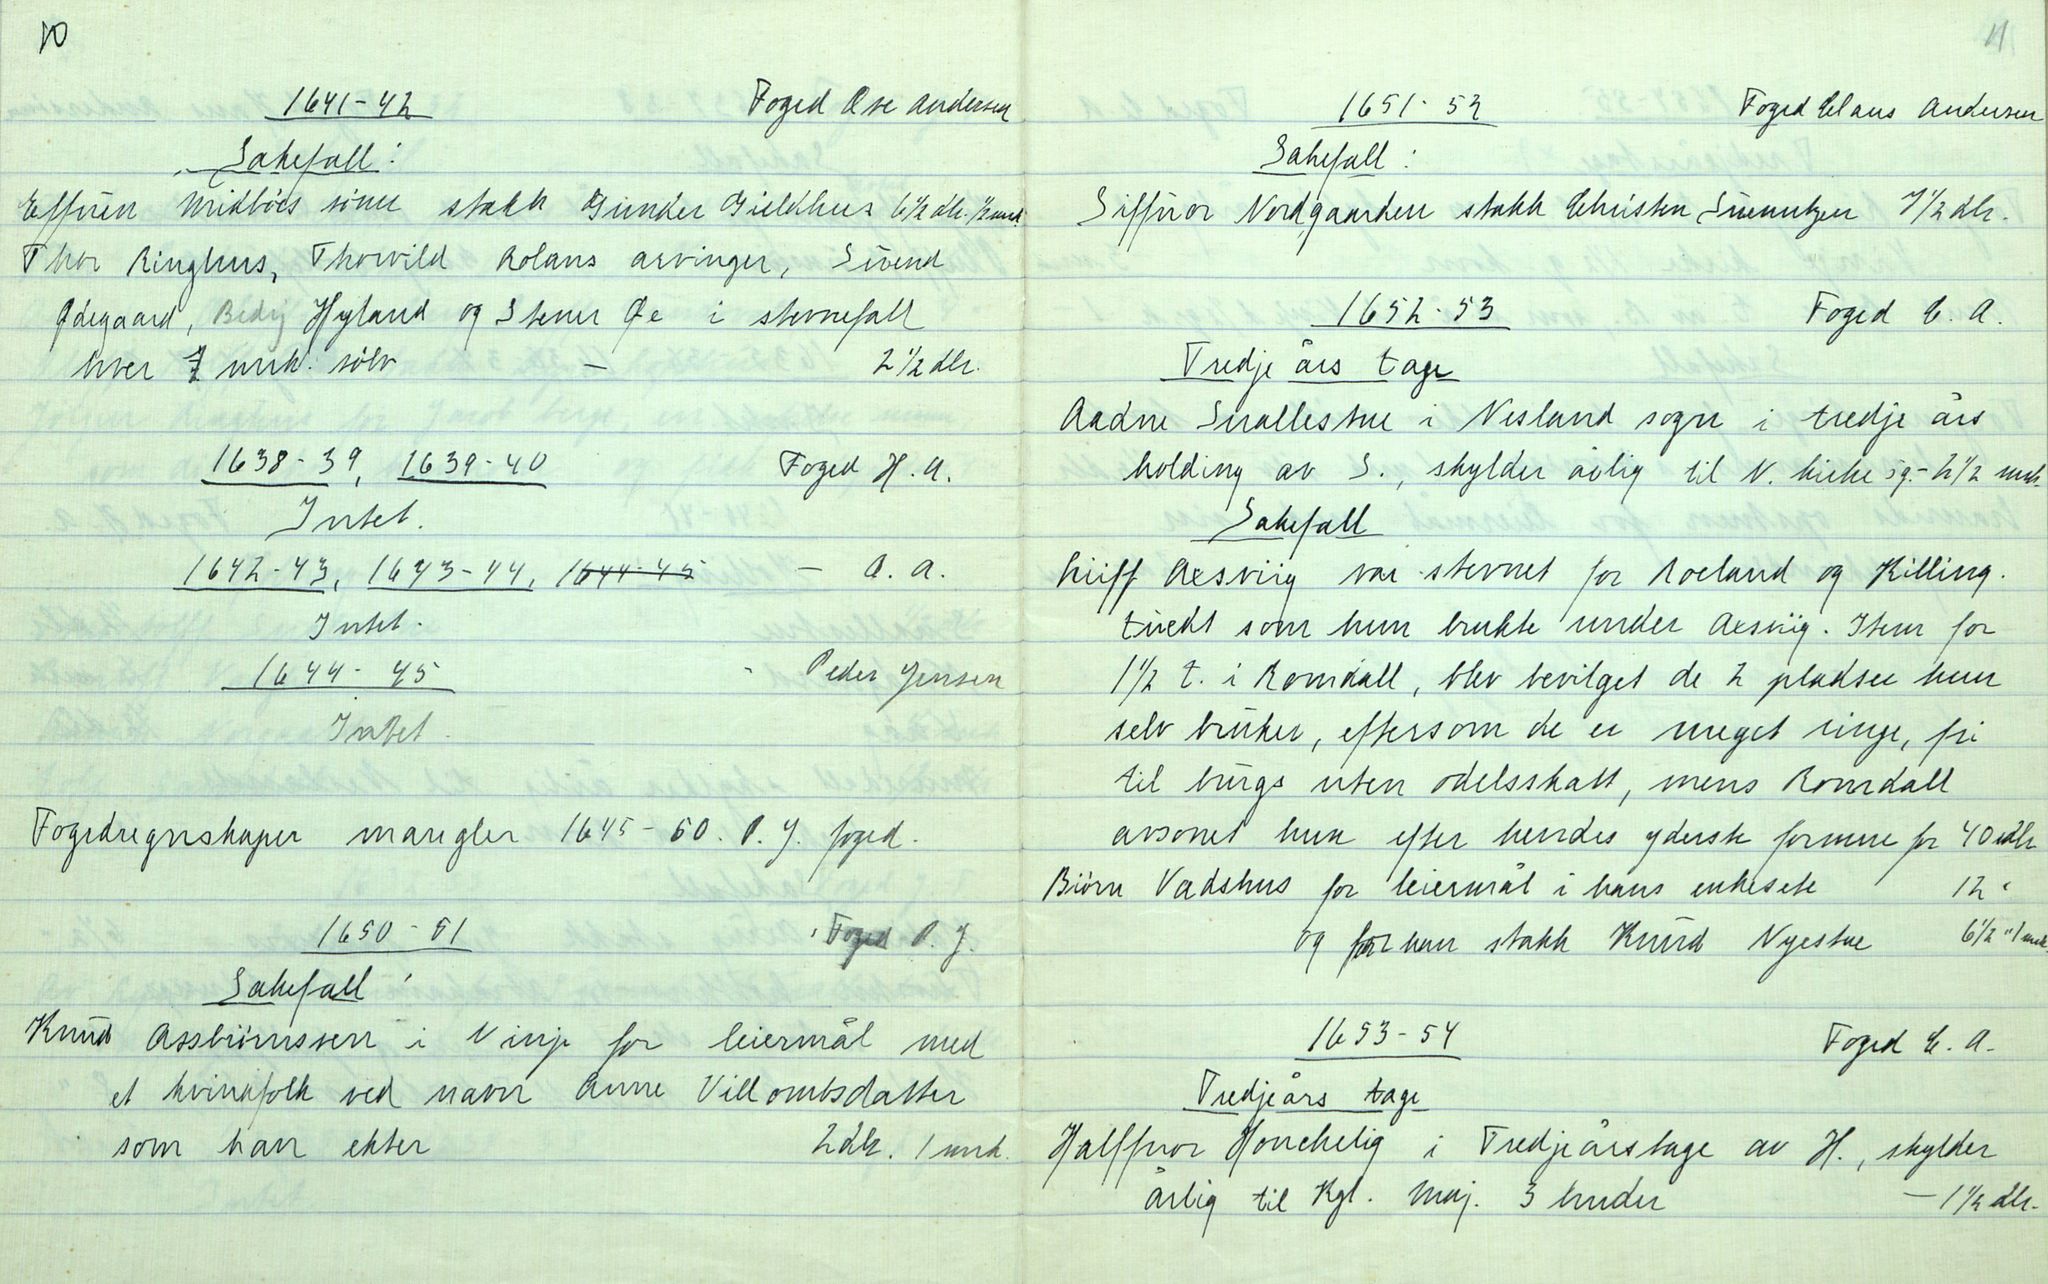 10
1641-42 Foged Ose Andersen
Sakefall:
Effuen Midböes söner stakk Gunder Gieldhus 6½ dlr. ½ mrk.
Thor Ringhus, Thorvild Rolans arvinger, Svend
Ødegaard, Hyland og Stener Øe i stevnefall
hver 7 mrk. sølv - 2 ½ dlr.
1638-39, 1639-40 Foged H. A.
Intet.
1642-43, 1643-44, 1644-45 - A. A.
Intet.
1644-45 - Peder Jensen
Intet.
Fogedregnskaper mangler 1645-50. P. J. foged.
1650-51 Foged P. J.
Sakefall:
Knud Assbiörnssen i Vinje for leiermål med
et kvindfolk ved navn Anne Villombsdatter
som han ekter 2 dlr. 1 mrk.
11
1651-52 Foged Claus Andersen
Sakefall:
Siffuor Nordgaarden stakk Christen 7½ dlr.
1652-53 Foged C. A.
Tredje års tage
Aadne Smallestue i Nesland sogn i tredje års
holding av S., skylder årlig til N. kirke 2½ mrk.
Sakefall
Liff Aesviig var stevnet for Roeland og Killing-
tuedt som hun brukte under Aesviig. Item for
1½ t. i Romdall, blev bevilget de 2 pladser hun
selv bruker, eftersom de er meget ringe, fri
til bügs uten odelsskatt, mens Romdall
avsonet hun efter hendes yderste formue for 40 dlr
Biörn Vadshus for leiermål i hans enkesete 12 "
og for han stakk Knud Nyestue 6½ " 1 mrk.
1653-54 Foged C. A.
Tredjeårs tage
Halffuor Honchelig i Tredjeårstage av H., skylder
årlig til Kgl. Maj. 3 huder - 1½ dlr.